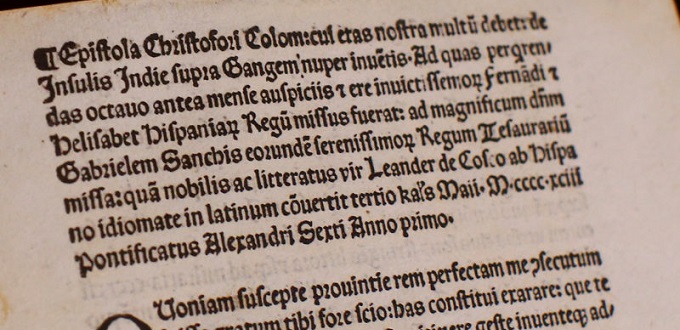 ¶Epistola Christofori Colom: cui etas nostra multū debet: de
Insulis Indie supra Gangem nuper inuētis. Ad quas perqren/
das octauo antea mense auspiciis ⁊ ere inuictissemoꝝ Fernādi ⁊
Helisabet Hispaniaꝝ Regū missus fuerat: ad magnificum dn̄m
Gabrielem Sanchis eorundē serenissimoꝝ Regum Tesaurariū
missa: quā nobilis ac litteratus vir Leander de Cosco ab Hispa
no idiomate in latinum cōuertit tertio kal's Maii. M.cccc.xciii
Pontificatus Alexandri Sexti Anno primo.
Quoniam suscepte prouintie rem perfectam me ꝯsecutum
gratum tibi fore scio: has constitui exarare: que te
geste inuenteqꝫ ad/